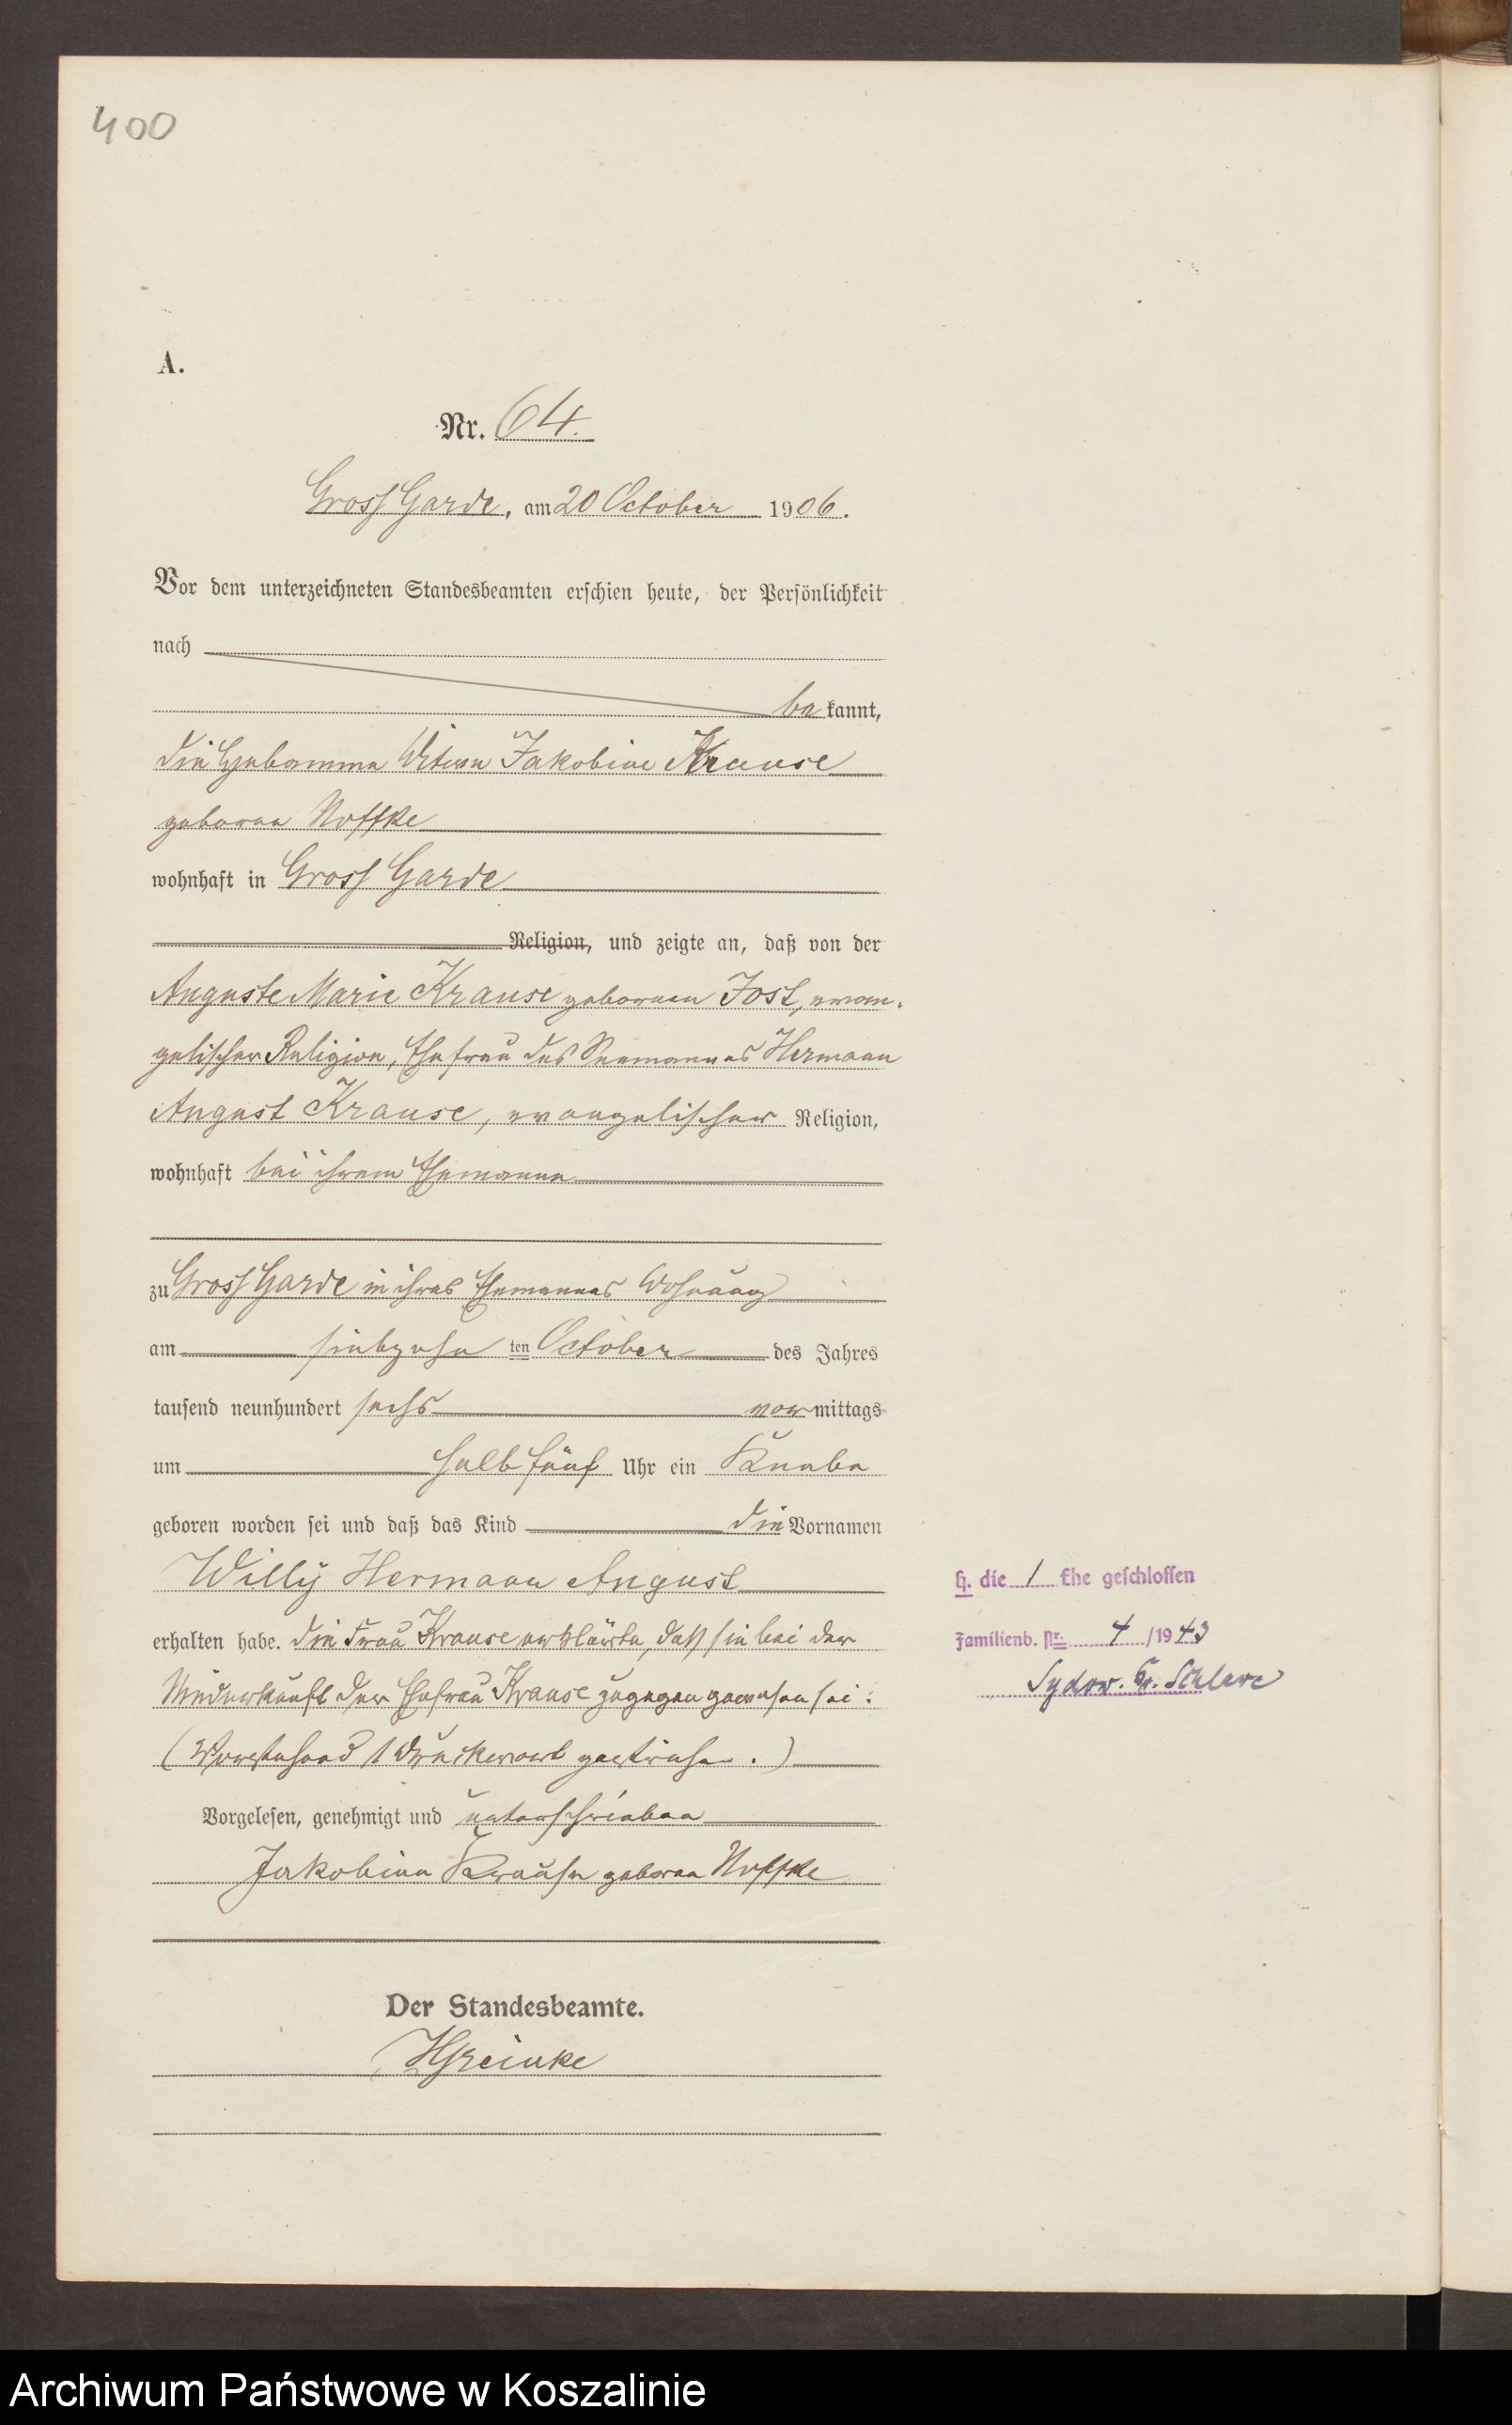 400
A.
Nr. 64.
Gross Garde, am 20 October 1906.
Vor dem unterzeichneten Standesbeamten erschien heute, der Persönlichkeit
nach
be kannt,
die Hebamme Witwe Jakobine Krause
geborne Noffke
wohnhaft in Gross Garde
Religion, und zeigte an, daß von der
Auguste Marie Krause gebornen Jost, evan-
gelischer Religion, Ehefrau des Seemannes Hermann
August Krause, evangelischer Religion,
wohnhaft bei ihrem Ehemanne
zu Gross Garde in ihres Ehemannes Wohnung
am siebzehn ten October des Jahres
tausend neunhundert sechs vor mittags
um halb fünf Uhr ein Knabe
geboren worden sei und daß das Kind die Vornamen
Willy Hermann August
erhalten habe. Die Frau Krause erklärte, daß sie bei der
Niederkunft der Ehefrau Krause zugegen gewesen sei.
(Vorstehend 1 Druckwort gestrichen.)
Vorgelesen, genehmigt und unterschrieben
Jakobine Krause geborne Noffke
Der Standesbeamte.
HGreinke
H. die 1 Ehe geschlossen
Familienb. Nr. 4/1943
Sydow. Kr. Schlawe
Archiwum Państwowe w Koszalinie